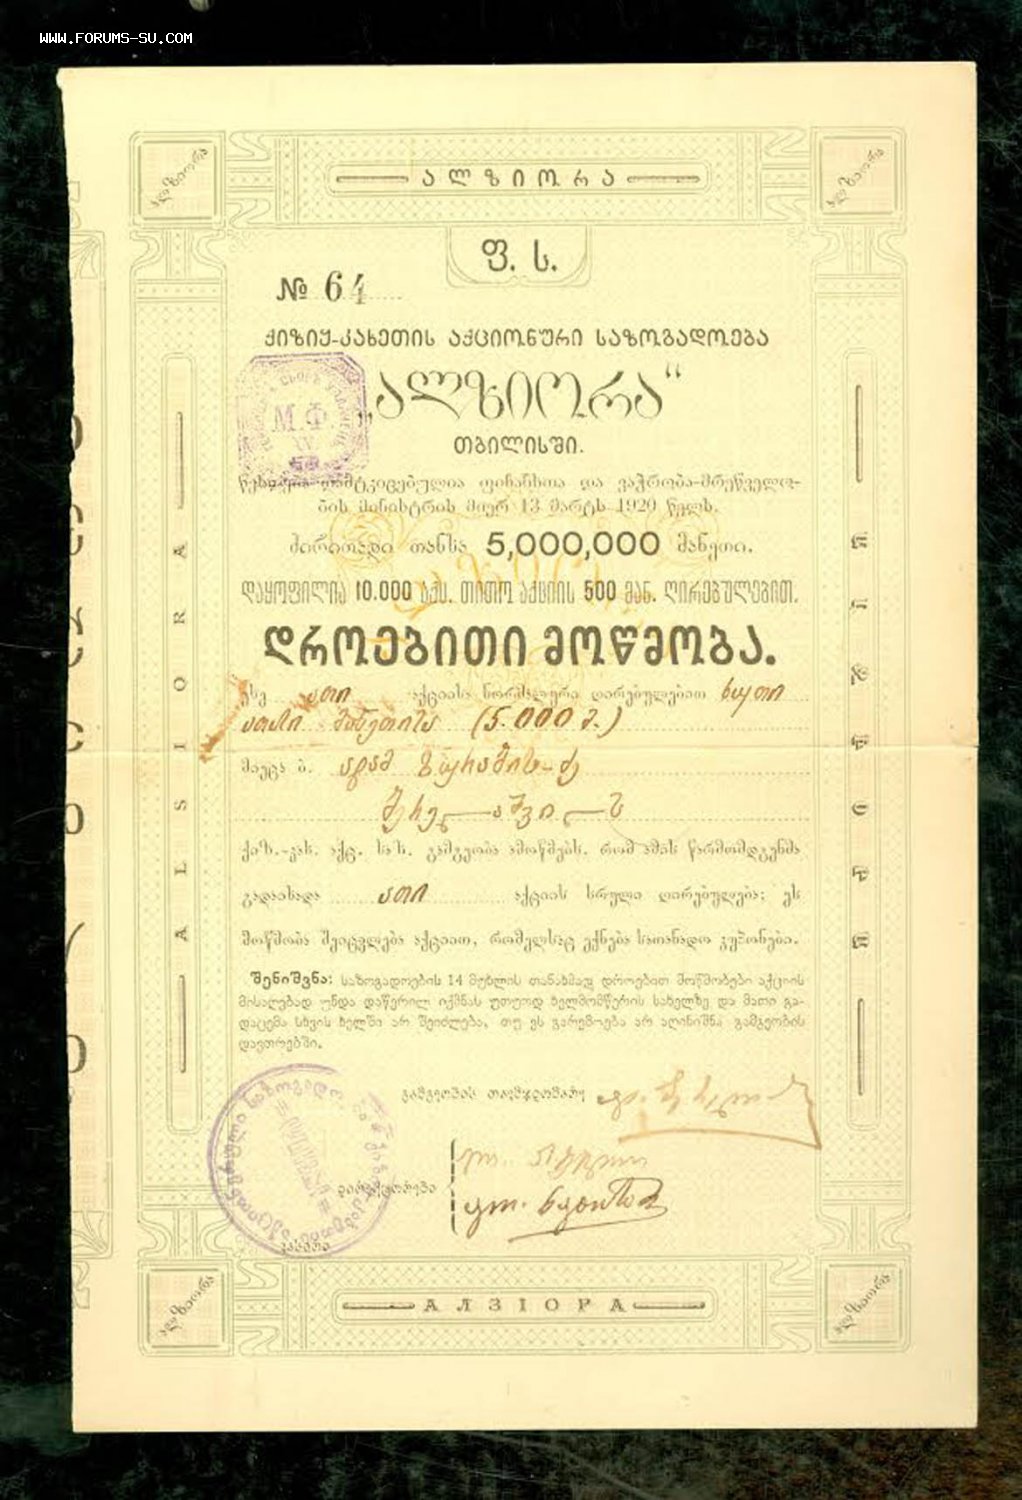 WWW.FORUMS-SU.COM
ალზიორა
ალზიორა
ალზიორა
ფ. ს.
№ 64
ქიზიყ-კახეთის აქციონური საზოგადოება
„ალზიორა“
თბილისში.
М.Ф.
წესდება დამტკიცებულია ფინანსთა და ვაჭრობა-მრეწველო-
ბის მინისტრის მიერ 13 მარტს 1920 წელს.
ძირითადი თანხა 5,000,000 მანეთი.
დაყოფილია 10.000 აქც. თითო აქციის 500 მან. ღირებულებით.
დროებითი მოწმობა.
ესე ათი აქციისა ნორმალური ღირებულებით ხუთი
ათასი მანეთისა (5.000 მ.)
მიეცა ბ. ადამ ზურაბის-ძე
ქიზ.-კახ. აქც. საზ. გამგეობა ამოწმებს, რომ ამის წარმომდგენმა
გადაიხადა ათი აქციის სრული ღირებულება; ეს
მოწმობა შეიცვლება აქციათ, რომელსაც ექნება სათანადო კუპონები.
შენიშვნა: საზოგადოების 14 მუხლის თანახმად დროებით მოწმობები აქციის
მისაღებად უნდა დაწერილ იქმნას უთუოდ ხელმომწერის სახელზე და მათი გა-
დაცემა სხვის ხელში არ შეიძლება, თუ ეს გარემოება არ აღინიშნა გამგეობის
დავთრებში.
გამგეობის თავმჯდომარე
დირექტორები
კასირი
ALSIORA
АЛЗІОРА
ალზიორა
АЛЗІОРА
ალზიორა